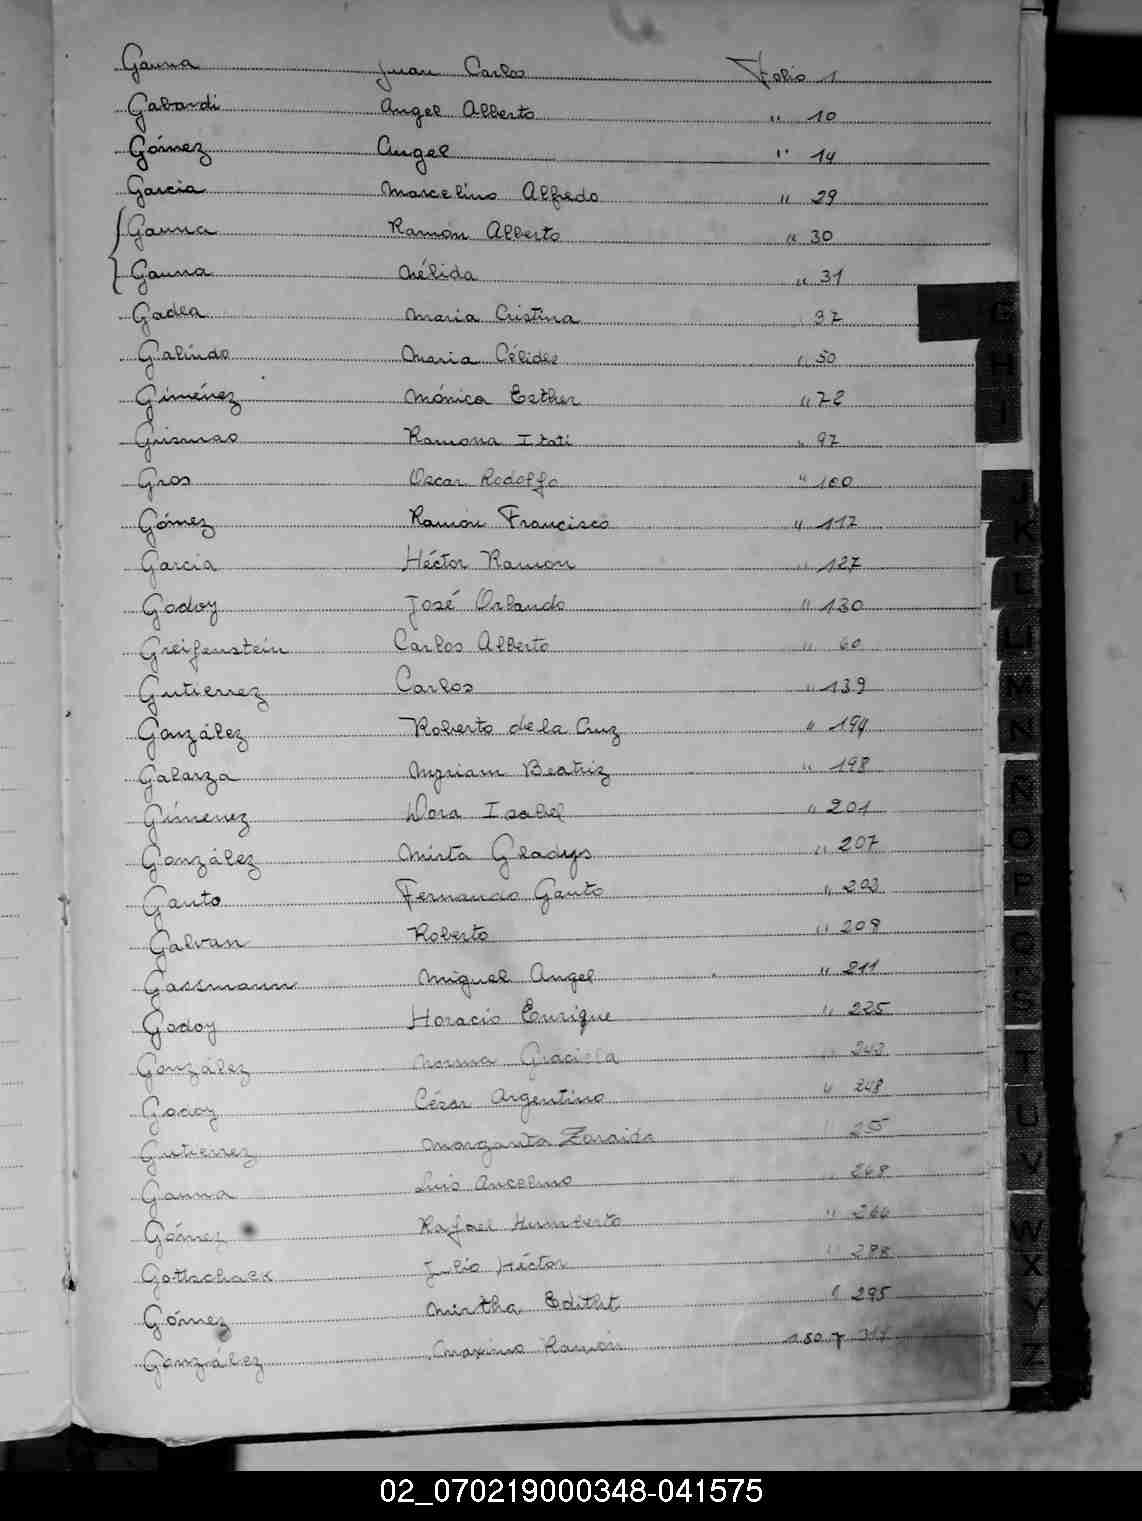 Gauna Juan Carlos Folio 1
Gabardi Angel Alberto " 10
Gómez Angel " 14
Garcia Marcelino Alfredo " 29
Gauna Ramón Alberto " 30
Gauna Nélida " 31
Gadea Maria Cristina " 37
Galindo Maria Célides " 50
Giménez Mónica Esther " 72
Ramona Itatí " 97
Gros Oscar Rodolfo " 100
Gómez Ramón Francisco " 117
Garcia Héctor Ramon " 127
Godoy José Orlando " 130
Greifenstein Carlos Alberto " 60
Gutierrez Carlos " 139
González Roberto de la Cruz " 194
Galarza Myriam Beatriz " 198
Gimenez Dora Isabel " 201
González Mirta Gladys " 207
Gauto Fernando Gauto " 203
Galvan Roberto " 208
Gassmann Miguel Angel " 211
Godoy Horacio Enrique " 225
González Norma Graciela " 242
Godoy César Argentino " 248
Gutierrez Margarita Zoraida "
Gauna Luis Ancelmo " 268
Gómez Rafael Humberto " 266
Gottschack Julio Héctor " 288
Gómez Mirtha Edith " 295
González Maximo Ramón 180 y
G
H
I
J
K
L
LL
M
N
Ñ
O
P
Q
S
T
U
V
W
X
Y
Z
02_070219000348-041575